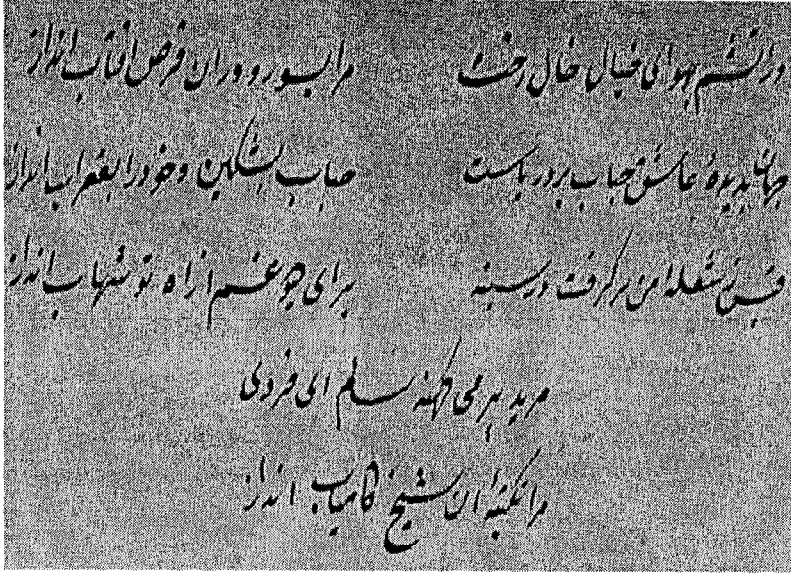 در آتشم بهوای خیال خال رخت مرا بسوز و در ان قرص افتاب انداز
جهان بدیدهٔ عاشق حباب بر دریاست حباب بشکن و خود را بقعر اب انداز
فسرد شعله امن بر گرفت در سینه برای جوغم از اه تو شهاب انداز
مرید پیر می کهنه سالم ای فردی
مرا بکتبهٔ ان شیخ کامیاب انداز